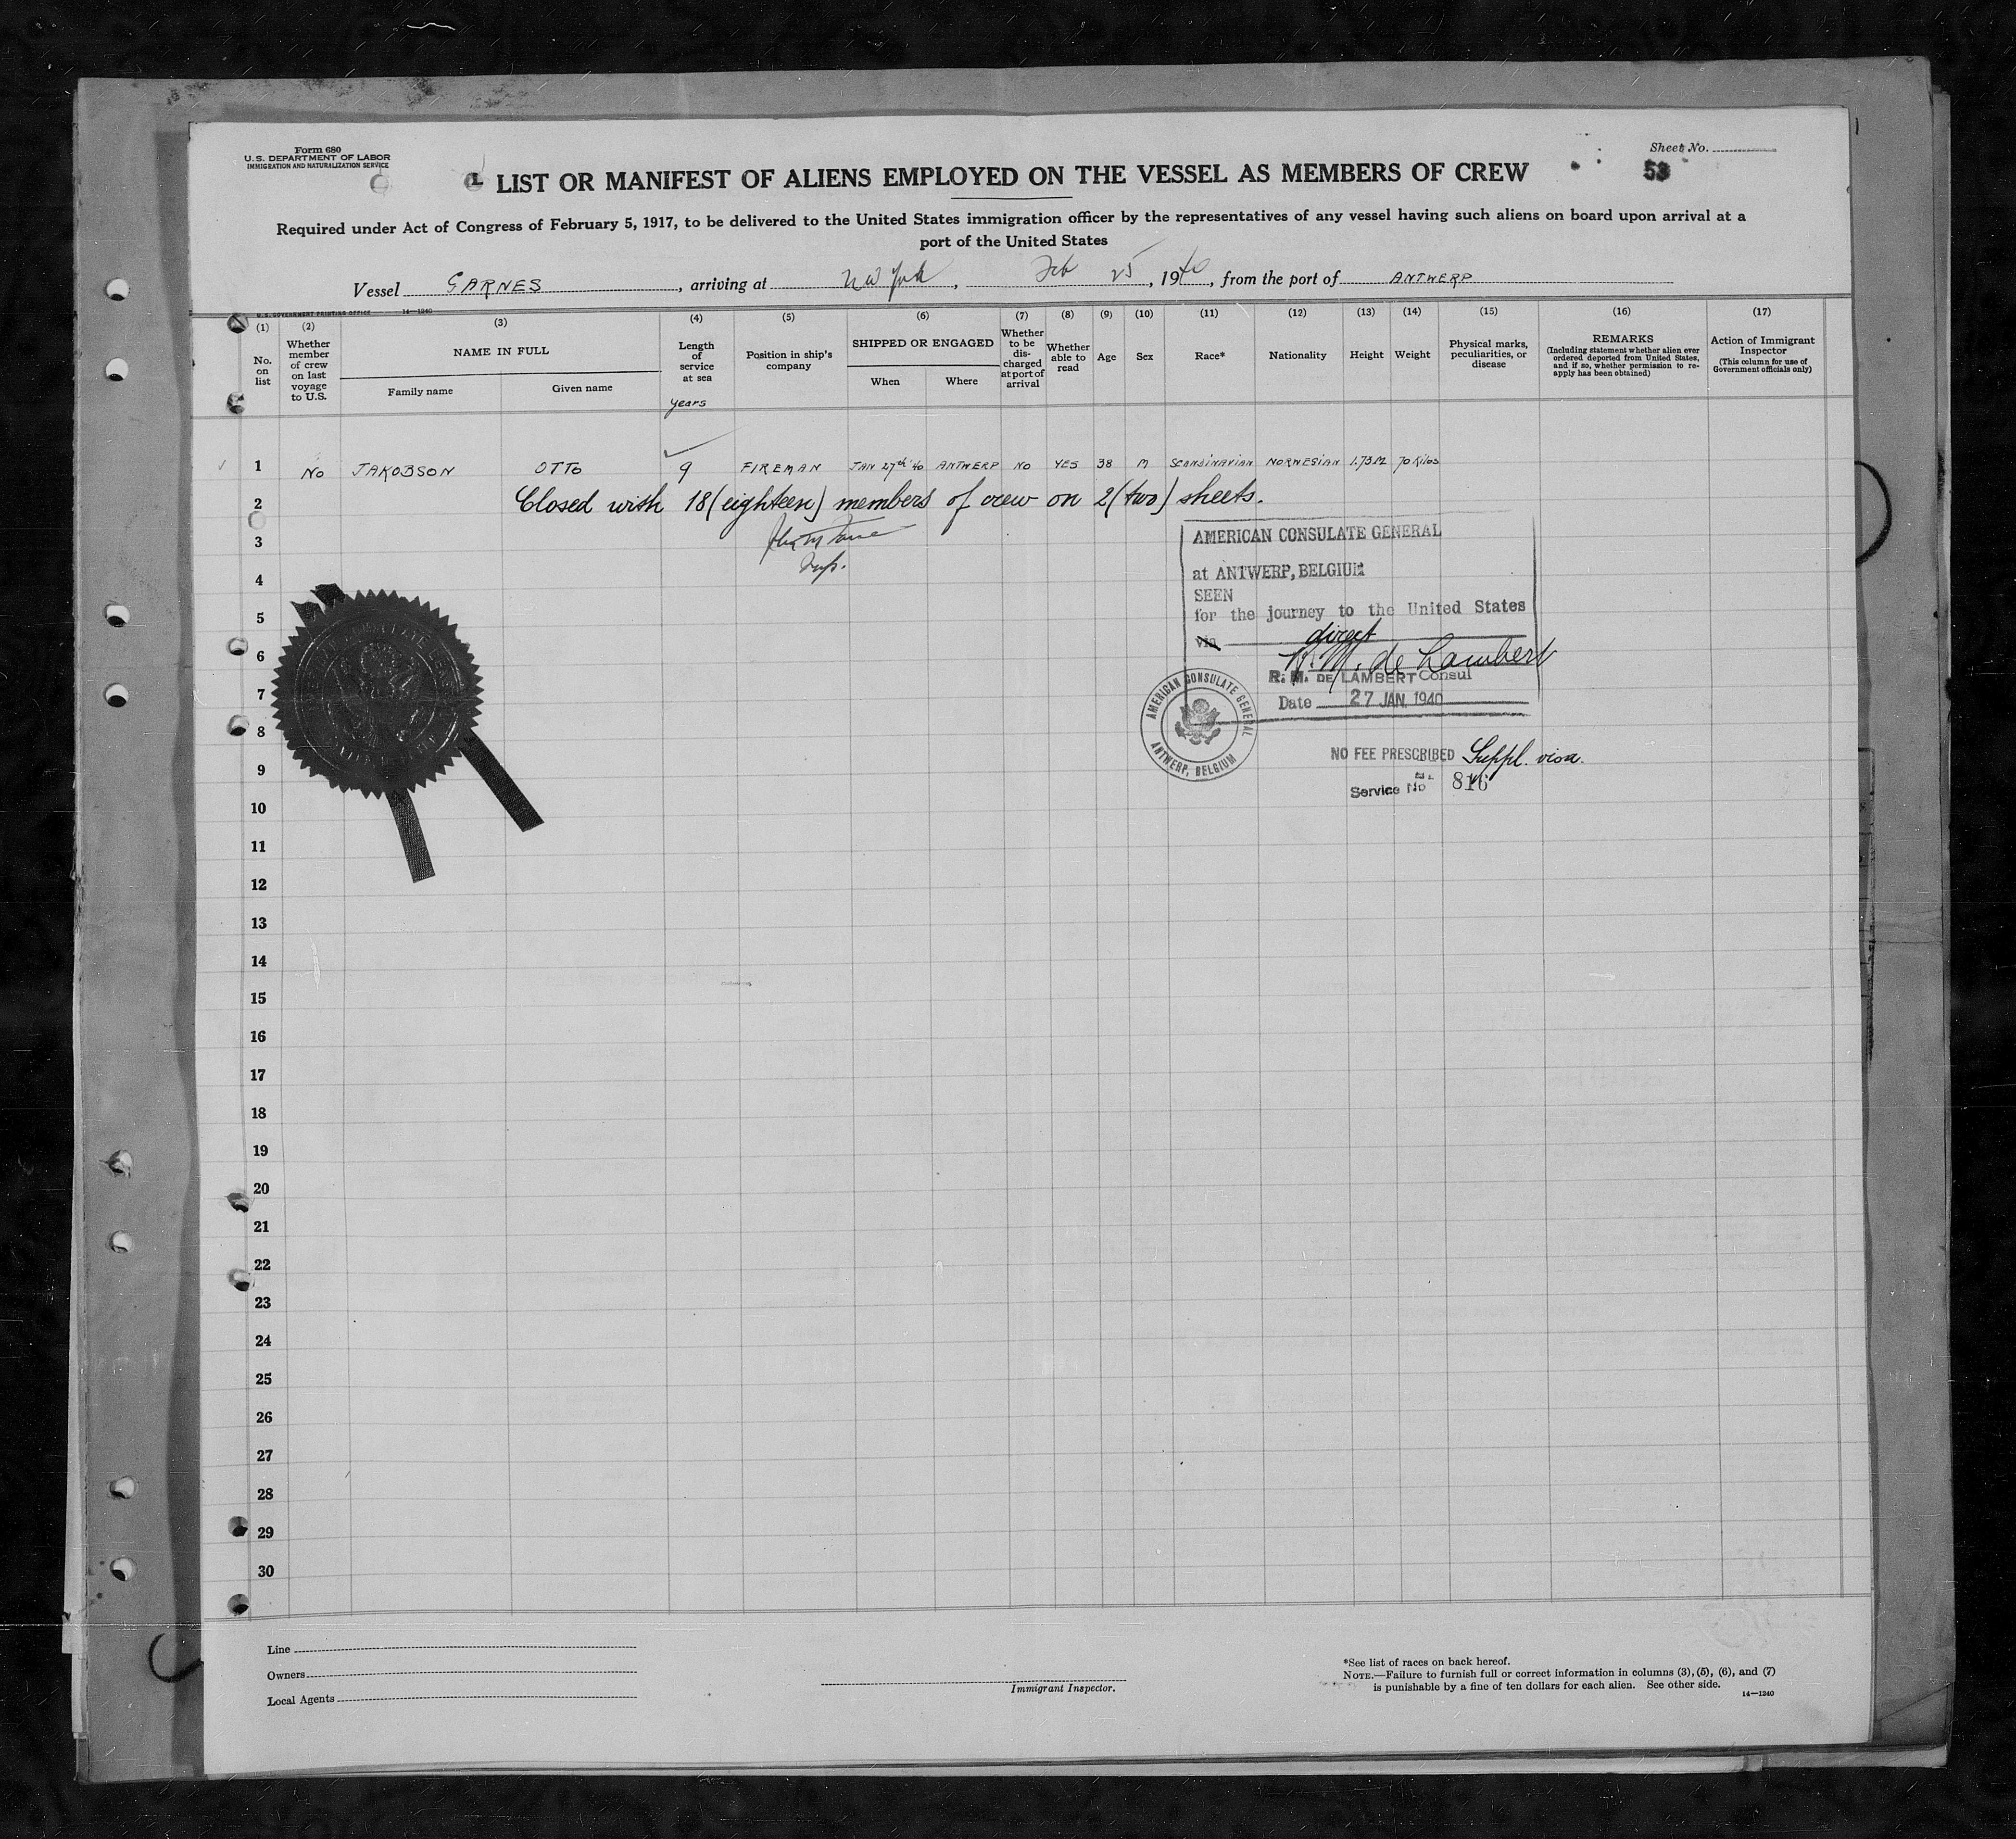 Form 680
U.S. DEPARTMENT OF LABOR
IMMIGRATION AND NATURALIZATION SERVICE
Sheet No.
53
LIST OR MANIFEST OF ALIENS EMPLOYED ON THE VESSEL AS MEMBERS OF CREW
Required under Act of Congress of February 5, 1917, to be delivered to the United States immigration officer by the representatives of any vessel having such aliens on board upon arrival at a
port of the United States
Vessel GARNES, arriving at New York, Feb 25, 1940, from the port of ANTWERP
U.S. GOVERNMENT PRINTING OFFICE 14—1240
(1) (2) (3) (4) (5) (6) (7) (8) (9) (10) (11) (12) (13) (14) (15) (16) (17)
No. on list
Whether member of crew on last voyage to U.S.
NAME IN FULL
Family name
Given name
Length of service at sea
years
Position in ship's company
SHIPPED OR ENGAGED
When
Where
Whether to be discharged at port of arrival
Whether able to read
Age
Sex
Race*
Nationality
Height
Weight
Physical marks, peculiarities, or disease
REMARKS
(Including statement whether alien ever ordered deported from United States, and if so, whether permission to reapply has been obtained)
Action of Immigrant Inspector
(This column for use of Government officials only)
1 No JAKOBSON OTTO 9 FIREMAN JAN 27th '40 ANTWERP NO YES 38 M SCANDINAVIAN NORWEGIAN 1.73M 70 Kilos
2 Closed with 18 (eighteen) members of crew on 2 (two) sheets.
3
4
5
6
7
8
9
10
11
12
13
14
15
16
17
18
19
20
21
22
23
24
25
26
27
28
29
30
AMERICAN CONSULATE GENERAL
at ANTWERP, BELGIUM
SEEN
for the journey to the United States
via direct
R. M. de Lambert
R. M. DE LAMBERT Consul
Date 27 JAN. 1940
AMERICAN CONSULATE GENERAL
ANTWERP, BELGIUM
NO FEE PRESCRIBED Suppl. visa.
Service No 816
Line
Owners
Local Agents
Immigrant Inspector.
*See list of races on back hereof.
NOTE.—Failure to furnish full or correct information in columns (3), (5), (6), and (7)
is punishable by a fine of ten dollars for each alien. See other side.
14—1240